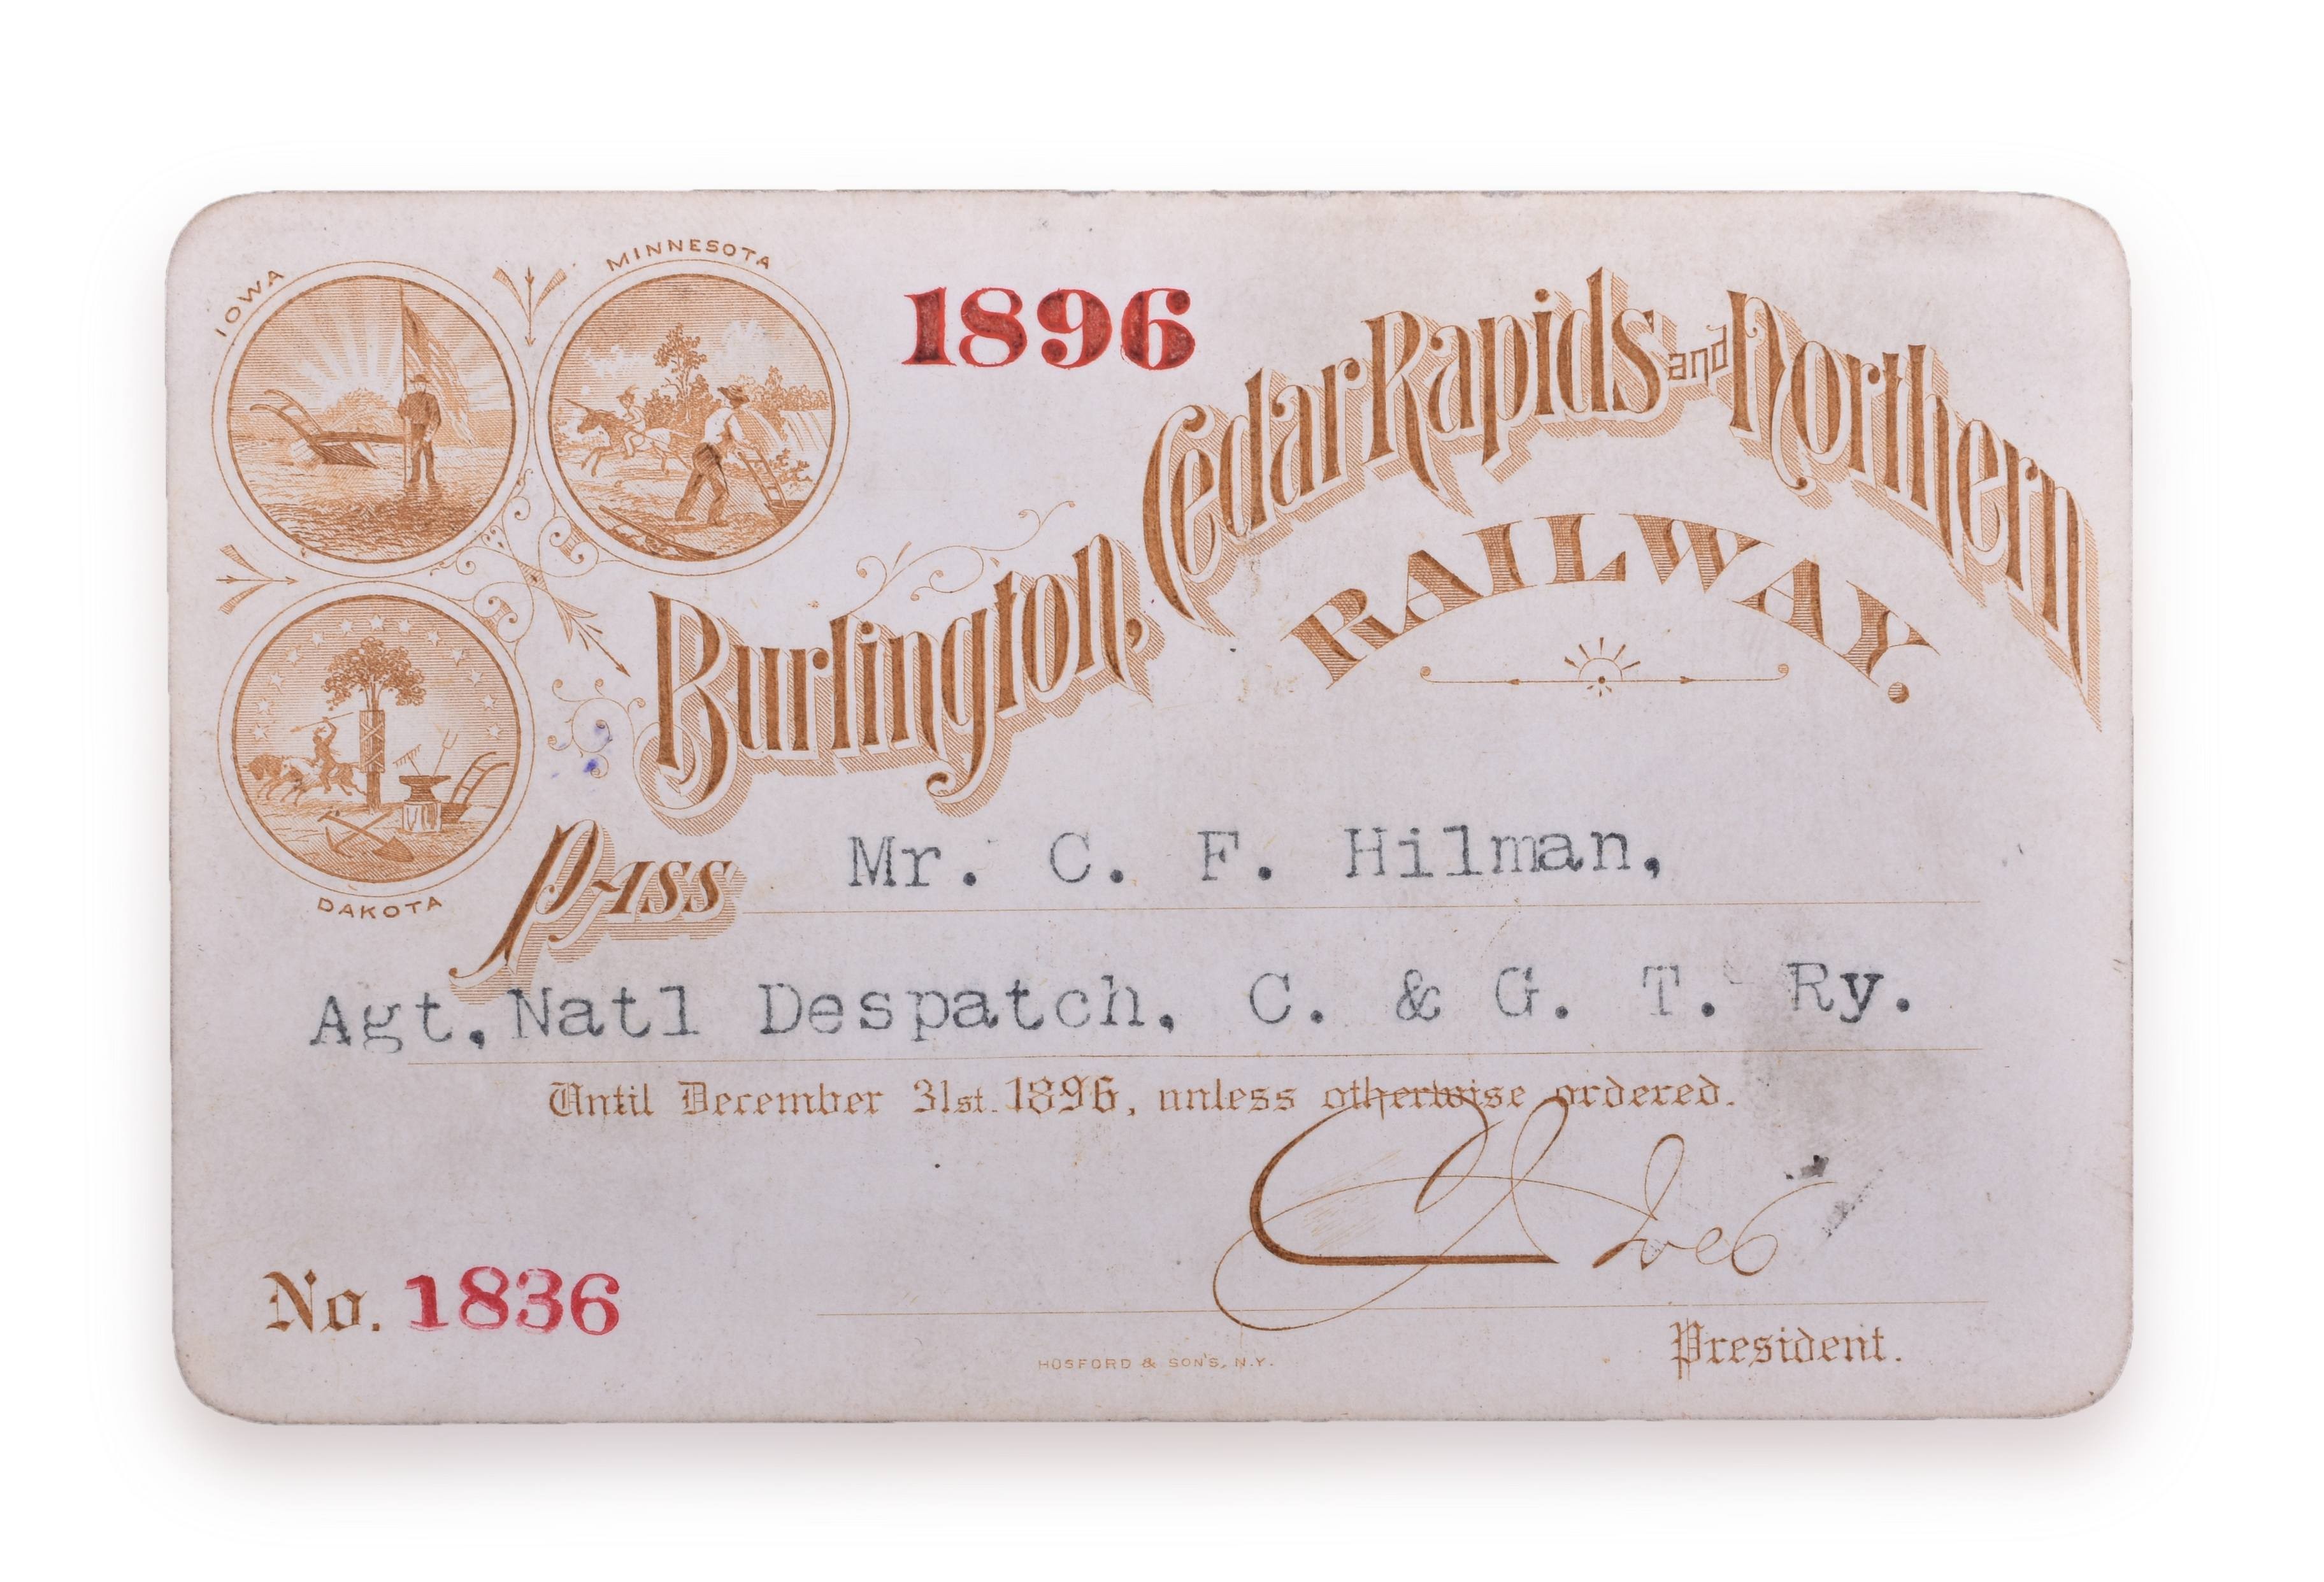 IOWA
MINNESOTA
DAKOTA
1896
Burlington, Cedar Rapids and Northern
RAILWAY.
Pass Mr. C. F. Hilman,
Agt. Natl Despatch, C. & G. T. Ry.
Until December 31st. 1896, unless otherwise ordered.
C J Ives
No. 1836
President.
HOSFORD & SON'S, N.Y.